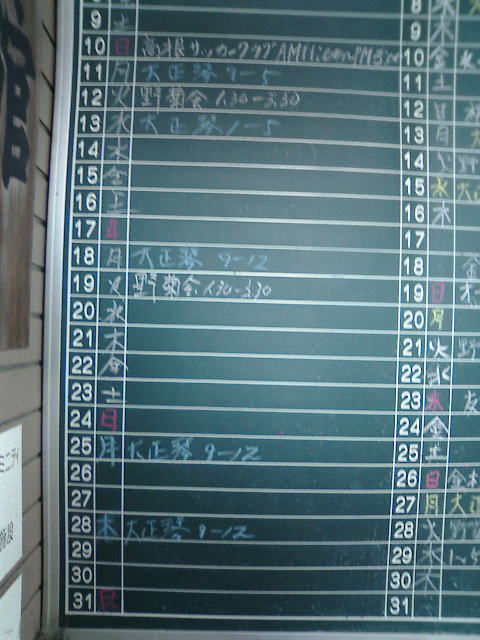 9 土
10 日 高根サッカークラブ AM11:00~PM
11 月 大正琴 9-5
12 火 野菊会 1.30-3.30
13 水 大正琴 1-5
14 木
15 金
16 土
17 日
18 月 大正琴 9-12
19 火 野菊会 1.30-3.30
20 水
21 木
22 金
23 土
24 日
25 月 大正琴 9-12
26
27
28 木 大正琴 9-12
29
30
31 日
8 木
9 木
10 金
11 土
12 日
13 月
14 火 野
15 水 大正
16 木
17
18 金
19 日
20 月
21 火 野
22 水
23 木 友
24 金
25 土
26 日 金木
27 月 大正
28 火 野
29 水 1~5
30 木
31
館
ミニティ
施設